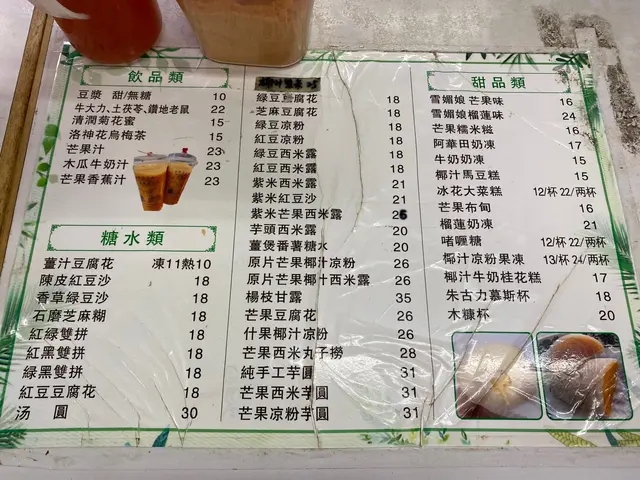 飲品類
豆漿 甜/無糖 10
牛大力、土茯苓、鑽地老鼠 22
清潤菊花蜜 15
洛神花烏梅茶 15
芒果汁 23
木瓜牛奶汁 23
芒果香蕉汁 23
糖水類
薑汁豆腐花 凍11熱10
陳皮紅豆沙 18
香草綠豆沙 18
石磨芝麻糊 18
紅綠雙拼 18
紅黑雙拼 18
綠黑雙拼 18
紅豆豆腐花 18
汤圓 30
綠豆豆腐花 18
芝麻豆腐花 18
綠豆凉粉 18
紅豆凉粉 18
綠豆西米露 18
紅豆西米露 18
紫米西米露 21
紫米紅豆沙 21
紫米芒果西米露 26
芋頭西米露 20
薑煲番薯糖水 20
原片芒果椰汁凉粉 26
原片芒果椰汁西米露 26
楊枝甘露 35
芒果豆腐花 26
什果椰汁凉粉 26
芒果西米丸子撈 28
純手工芋圓 31
芒果西米芋圓 31
芒果凉粉芋圓 31
甜品類
雪媚娘 芒果味 16
雪媚娘榴蓮味 24
芒果糯米糍 16
阿華田奶凍 15
牛奶奶凍 15
椰汁馬豆糕 15
冰花大菜糕 12/杯 22/两杯
芒果布甸 16
榴蓮奶凍 21
啫喱糖 12/杯 22/两杯
椰汁凉粉果凍 13/杯 24/两杯
椰汁牛奶桂花糕 17
朱古力慕斯杯 18
木糠杯 20